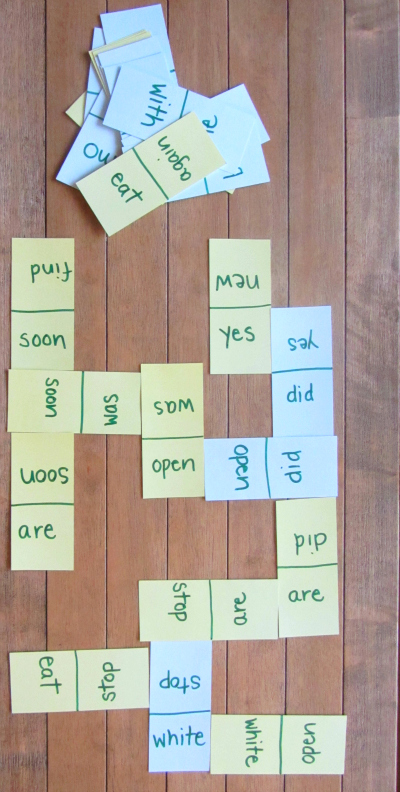 with
no
again
eat
find
new
soon
yes
yes
did
soon
was
was
soon
open
open
did
are
did
stop
are
are
eat
stop
stop
white
white
open